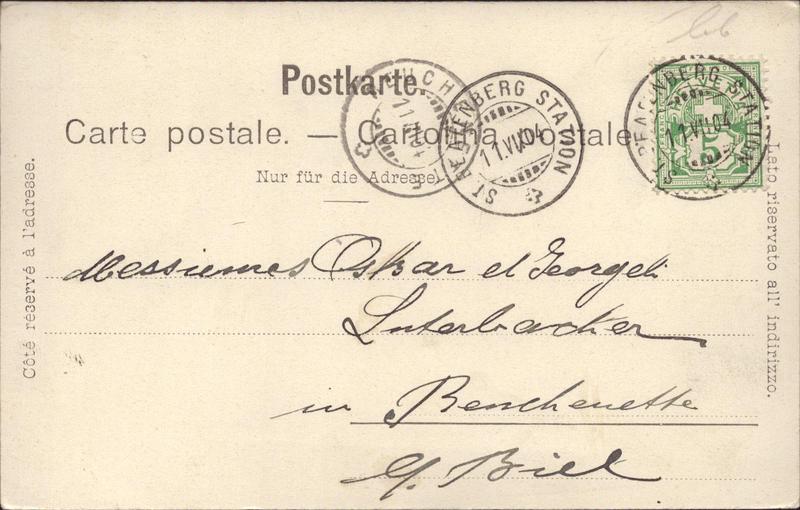 Postkarte.
Carte postale. — Cartolina postale.
Nur für die Adresse.
Côté réservé à l'adresse.
Lato riservato all' indirizzo.
ST. BEATENBERG STATION
11.VII.04
ST. BEATENBERG STATION
11.VII.04
5
Oskar et Georges
Luterbacher
in
Biel